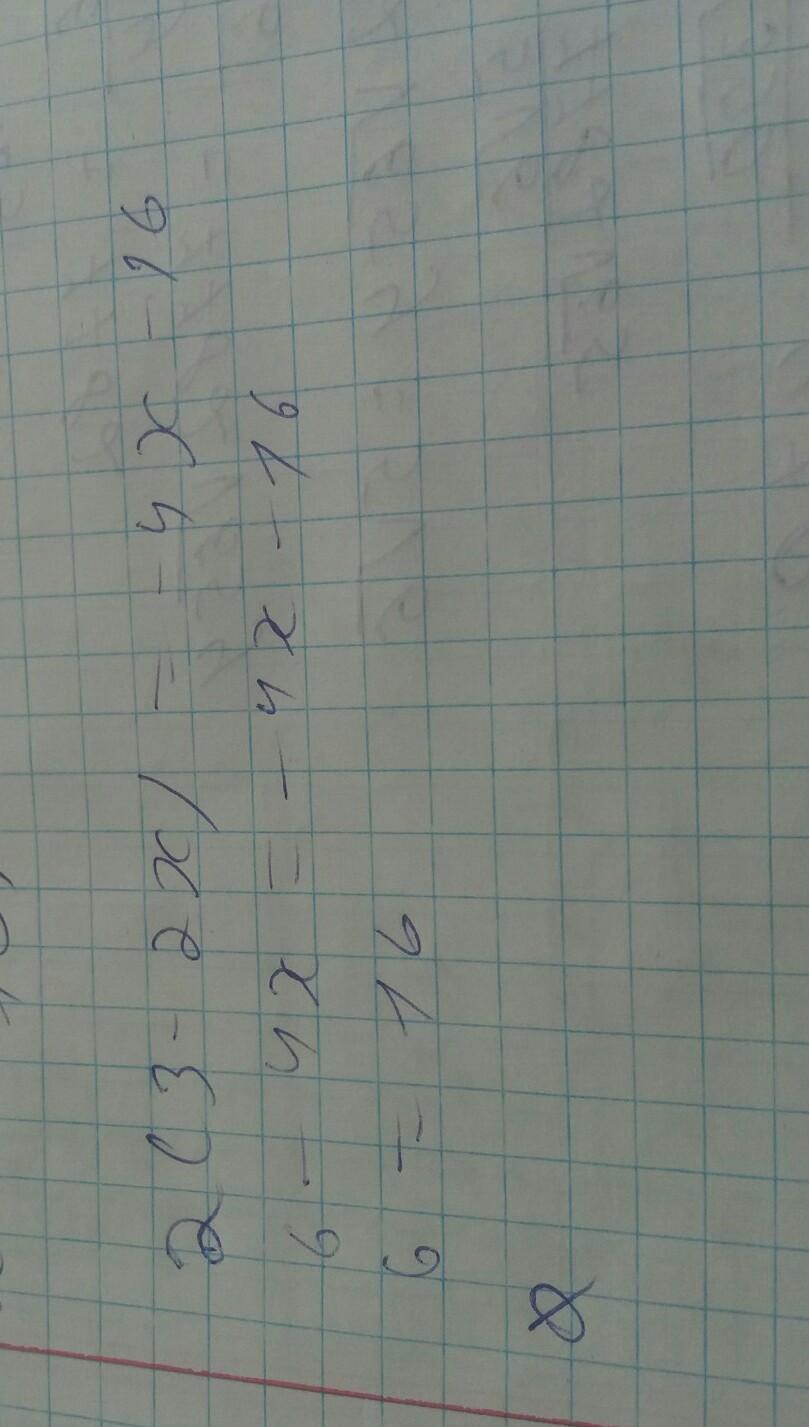 2(3-2x) = -4x -16
6 - 4x = -4x - 16
6 ≠ 16
∅